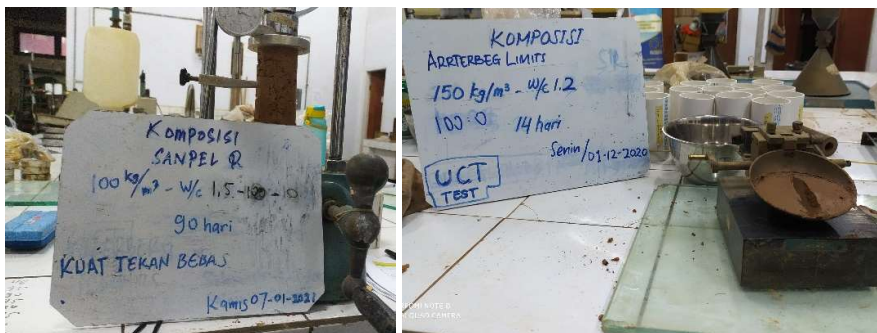 KOMPOSISI
SANPEL R
100 kg/m³ - W/c 1.5 - 10
90 hari
KUAT TEKAN BEBAS
Kamis 07-01-2021
KOMPOSISI
ARRTERBEG LIMITS
150 kg/m³ - W/c 1.2
100 0 14 hari
Senin/01-12-2020
UCT
TEST